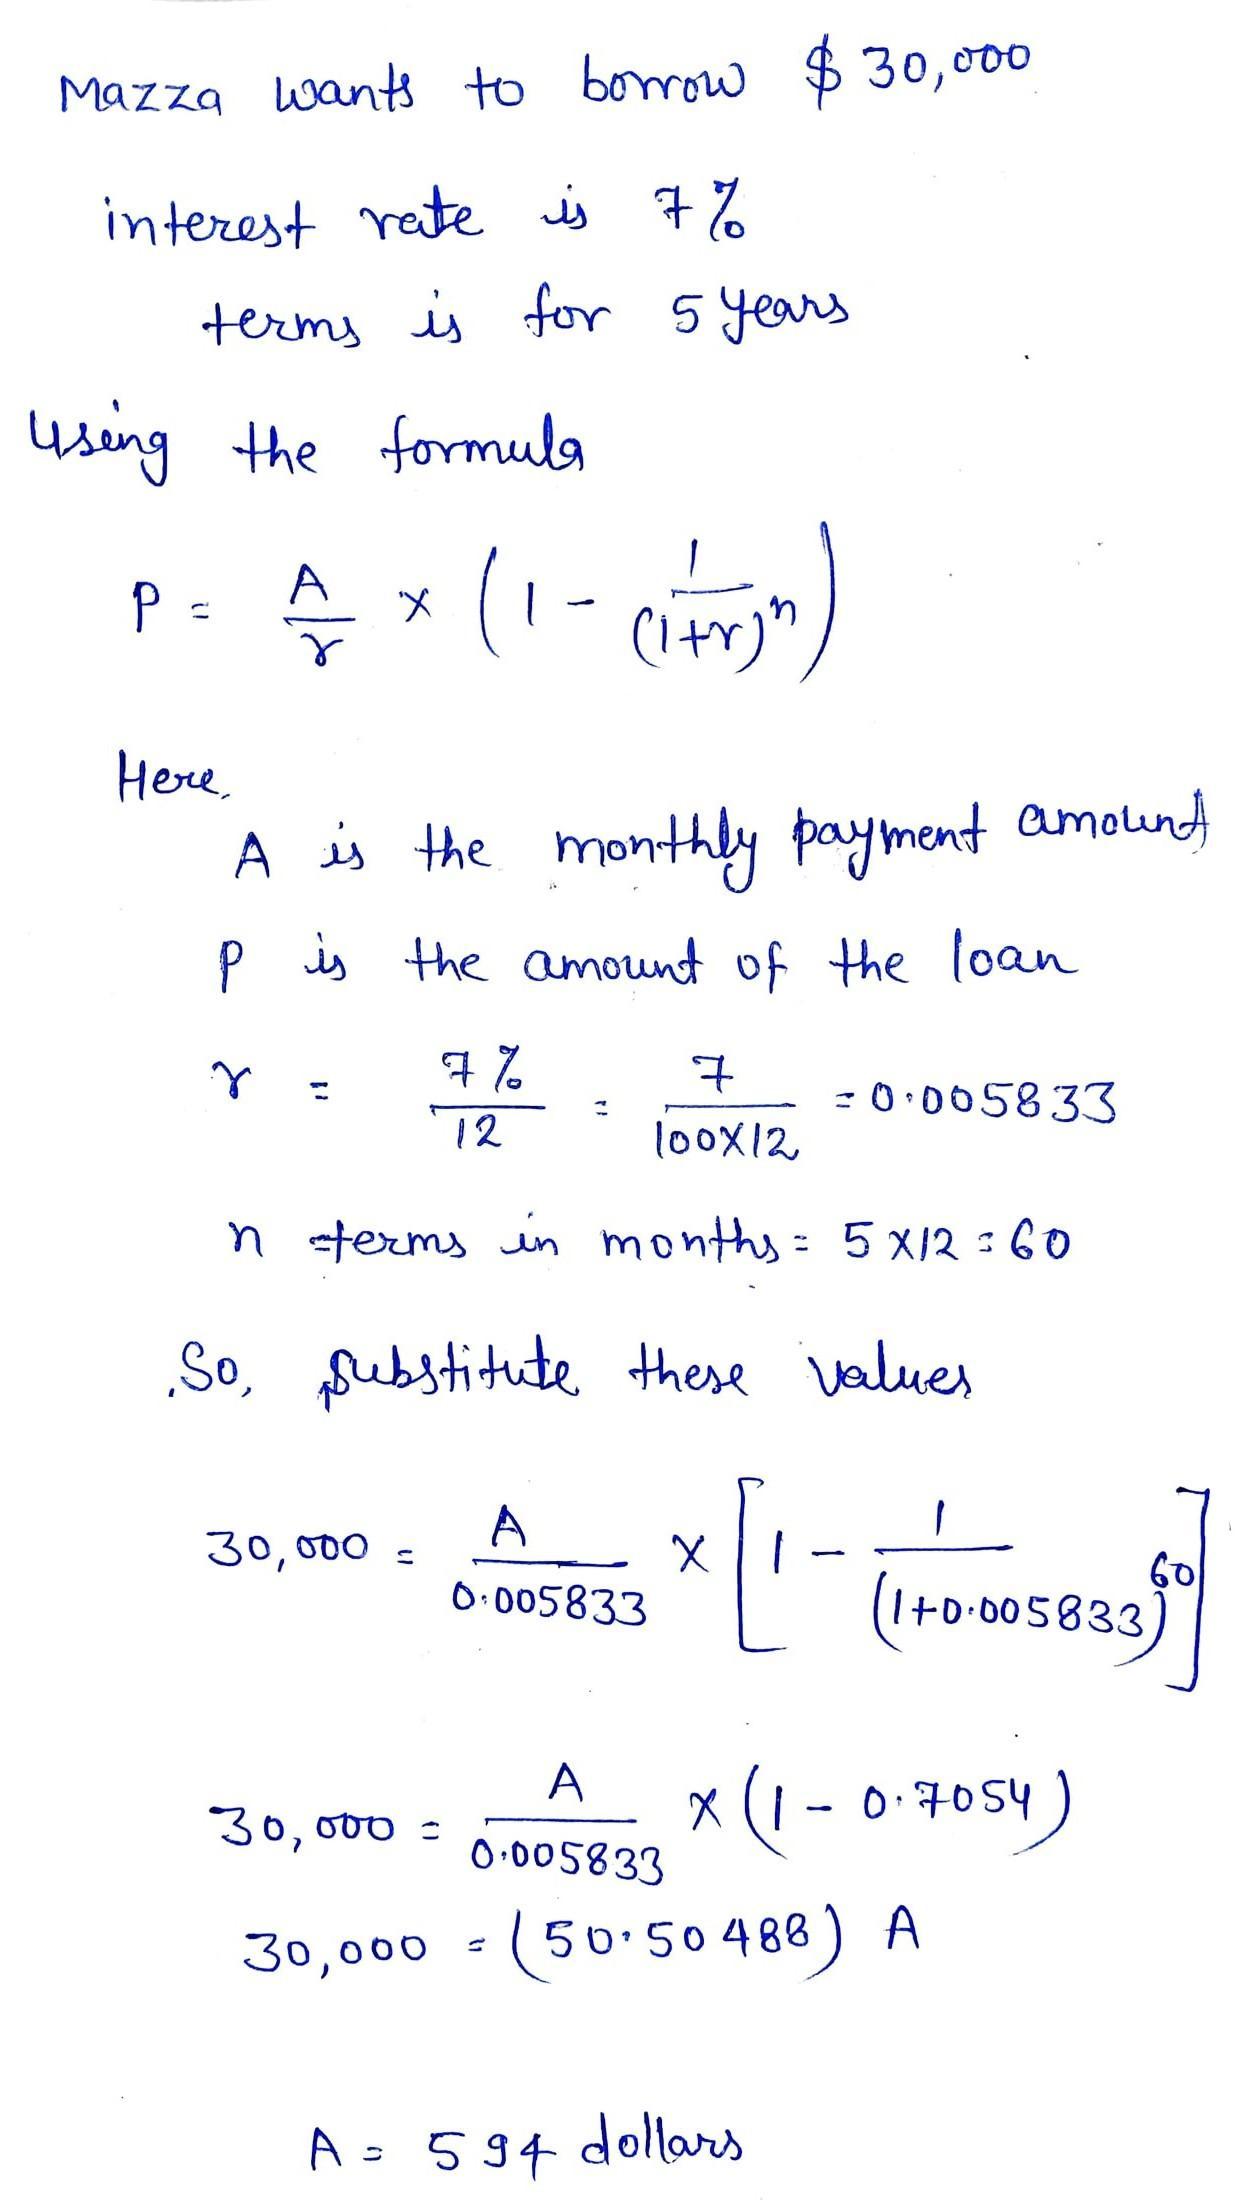 Mazza wants to borrow $ 30,000
interest rate is 7%
terms is for 5 years
Using the formula
P = A/r × (1 - 1/(1+r)^n)
Here,
A is the monthly payment amount
P is the amount of the loan
r = 7%/12 = 7/100×12 = 0.005833
n = terms in months = 5×12 = 60
So, substitute these values
30,000 = A/0.005833 × [1 - 1/(1+0.005833)^60]
30,000 = A/0.005833 × (1 - 0.7054)
30,000 = (50.50488) A
A = 594 dollars